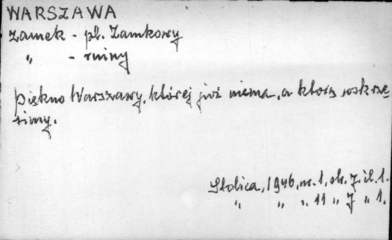 WARSZAWA
Zamek - pl. Zamkowy
" - ruiny
Piękno Warszawy, której już niema, a którą wskrze-
simy.
Stolica, 1946, nr. 1, ok. 7. il. 1.
" " " 11 " 7 " 1.